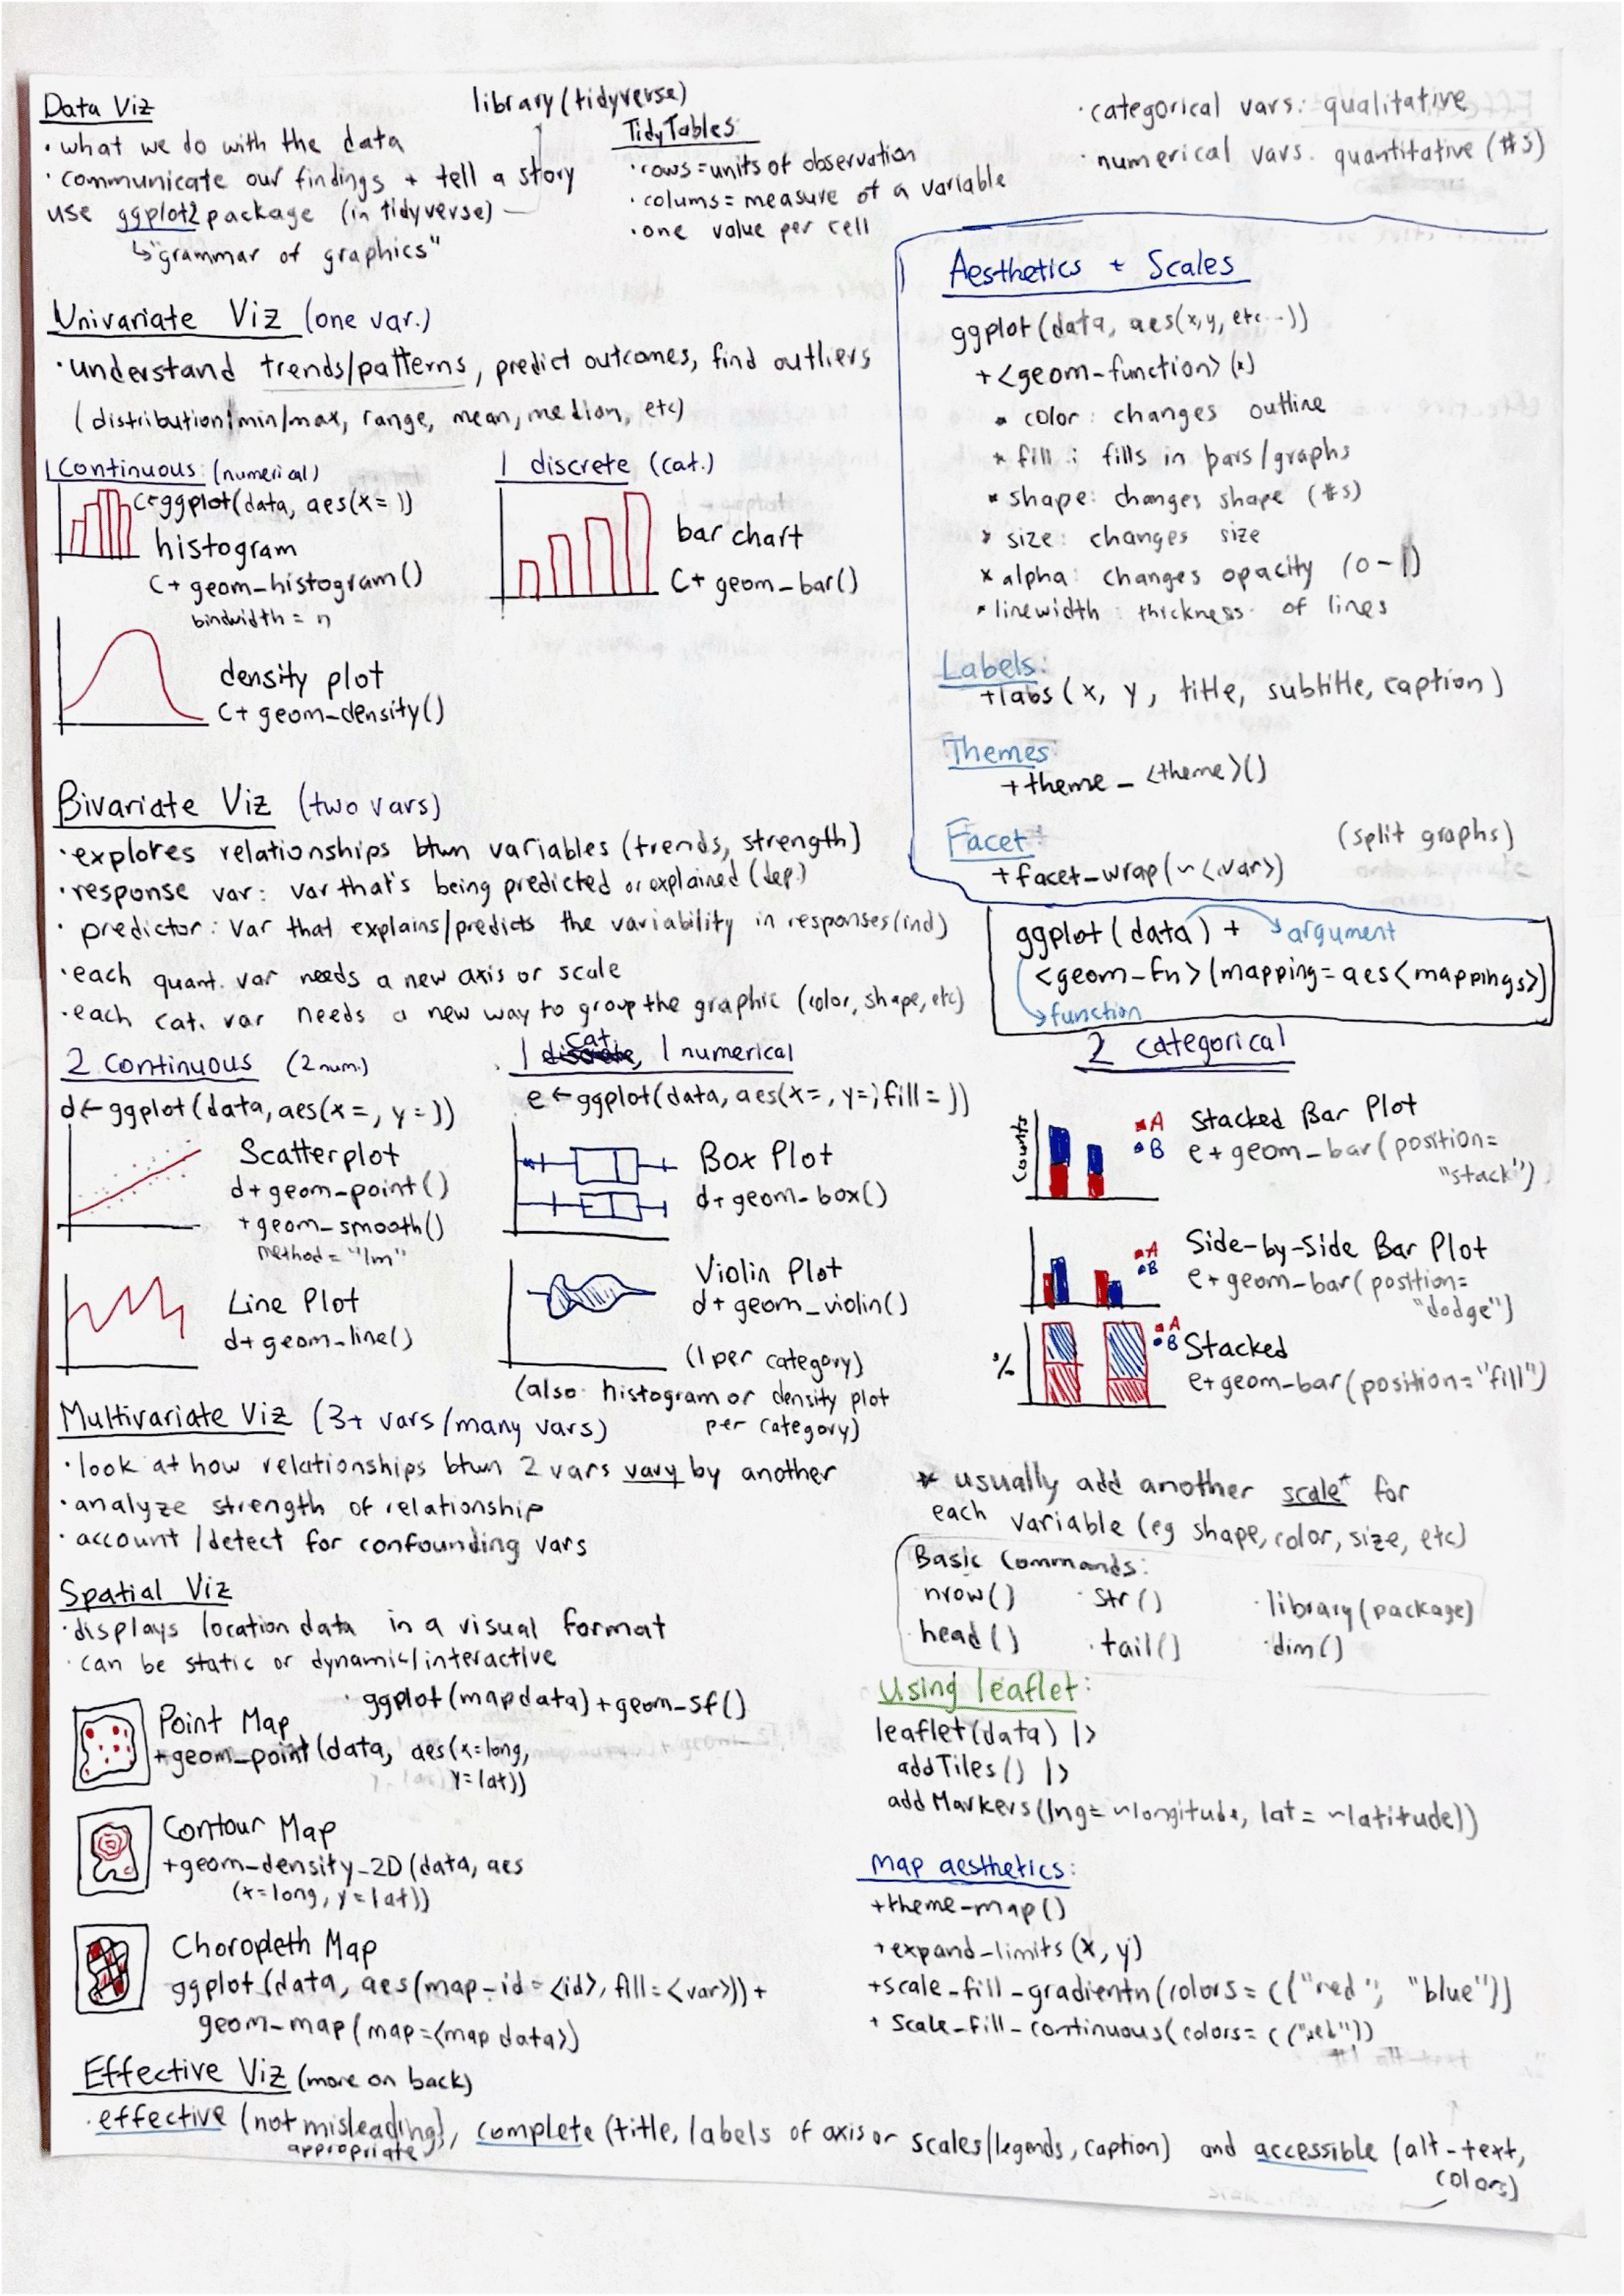 Data Viz
• what we do with the data
• communicate our findings + tell a story
use ggplot2 package (in tidyverse)
↳ "grammar of graphics"
library(tidyverse)
Tidy Tables:
• rows = units of observation
• colums = measure of a variable
• one value per cell
• categorical vars: qualitative
• numerical vars. quantitative (#s)
Univariate Viz (one var.)
• understand trends/patterns, predict outcomes, find outliers
(distribution: min/max, range, mean, median, etc)
1 Continuous: (numerical)
C←ggplot(data, aes(x= ))
histogram
C+ geom_histogram()
bindwidth = n
density plot
C+ geom_density()
1 discrete (cat.)
bar chart
C+ geom_bar()
Aesthetics + Scales
ggplot(data, aes(x,y, etc...))
+<geom-function>(x)
* color: changes outline
* fill: fills in bars/graphs
* shape: changes shape (#s)
* size: changes size
* alpha: changes opacity (0-1)
* linewidth: thickness of lines
Labels:
+labs(x, y, title, subtitle, caption)
Themes:
+theme_<theme>()
Facet: (split graphs)
+facet_wrap(~<var>)
ggplot(data) + argument
<geom_fn>(mapping=aes<mappings>)
function
Bivariate Viz (two vars)
• explores relationships btwn variables (trends, strength)
• response var: var that's being predicted or explained (dep.)
• predictor: var that explains/predicts the variability in responses (ind)
• each quant. var needs a new axis or scale
• each cat. var needs a new way to group the graphic (color, shape, etc)
2 Continuous (2 num.)
d←ggplot(data, aes(x=, y=))
Scatterplot
d+geom_point()
+geom_smooth()
method = "lm"
Line Plot
d+ geom_line()
1 cat, 1 numerical
e←ggplot(data, aes(x=, y=, fill= ))
Box Plot
d+ geom_box()
Violin Plot
d+ geom_violin()
(1 per category)
(also: histogram or density plot
per category)
2 categorical
Counts
A
B
Stacked Bar Plot
e+geom_bar(position=
"stack")
A
B
Side-by-Side Bar Plot
e+geom_bar(position=
"dodge")
%
A
B
Stacked
e+geom_bar(position="fill")
Multivariate Viz (3+ vars/many vars)
• look at how relationships btwn 2 vars vary by another
• analyze strength of relationship
• account/detect for confounding vars
* usually add another scale* for
each variable (eg shape, color, size, etc)
Basic Commands:
nrow() • str() • library(package)
• head() • tail() • dim()
Spatial Viz
• displays location data in a visual format
• can be static or dynamic/interactive
• ggplot(mapdata)+geom_sf()
Point Map
+geom_point(data, aes(x=long,
y=lat))
Contour Map
+geom_density_2D(data, aes
(x=long, y=lat))
Choropleth Map
ggplot(data, aes(map_id=<id>, fill=<var>))+
geom_map(map=<map data>)
Using leaflet:
leaflet(data) |>
addTiles() |>
addMarkers(lng= ~longitude, lat= ~latitude))
Map aesthetics:
+theme_map()
+expand_limits(x, y)
+scale_fill_gradientn(colors= c("red", "blue"))
+ scale_fill_continuous(colors= c("red"))
Effective Viz (more on back)
• effective (not misleading), complete (title, labels of axis or scales/legends, caption) and accessible (alt-text,
appropriate
colors)